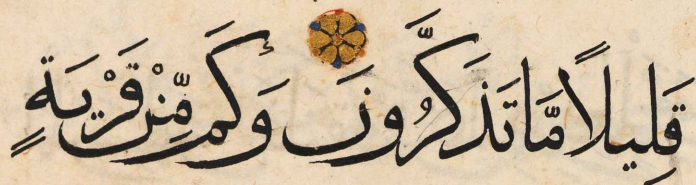 قَلِيلًا مَّا تَذَكَّرُونَ وَكَم مِّنْ قَرْيَةٍ